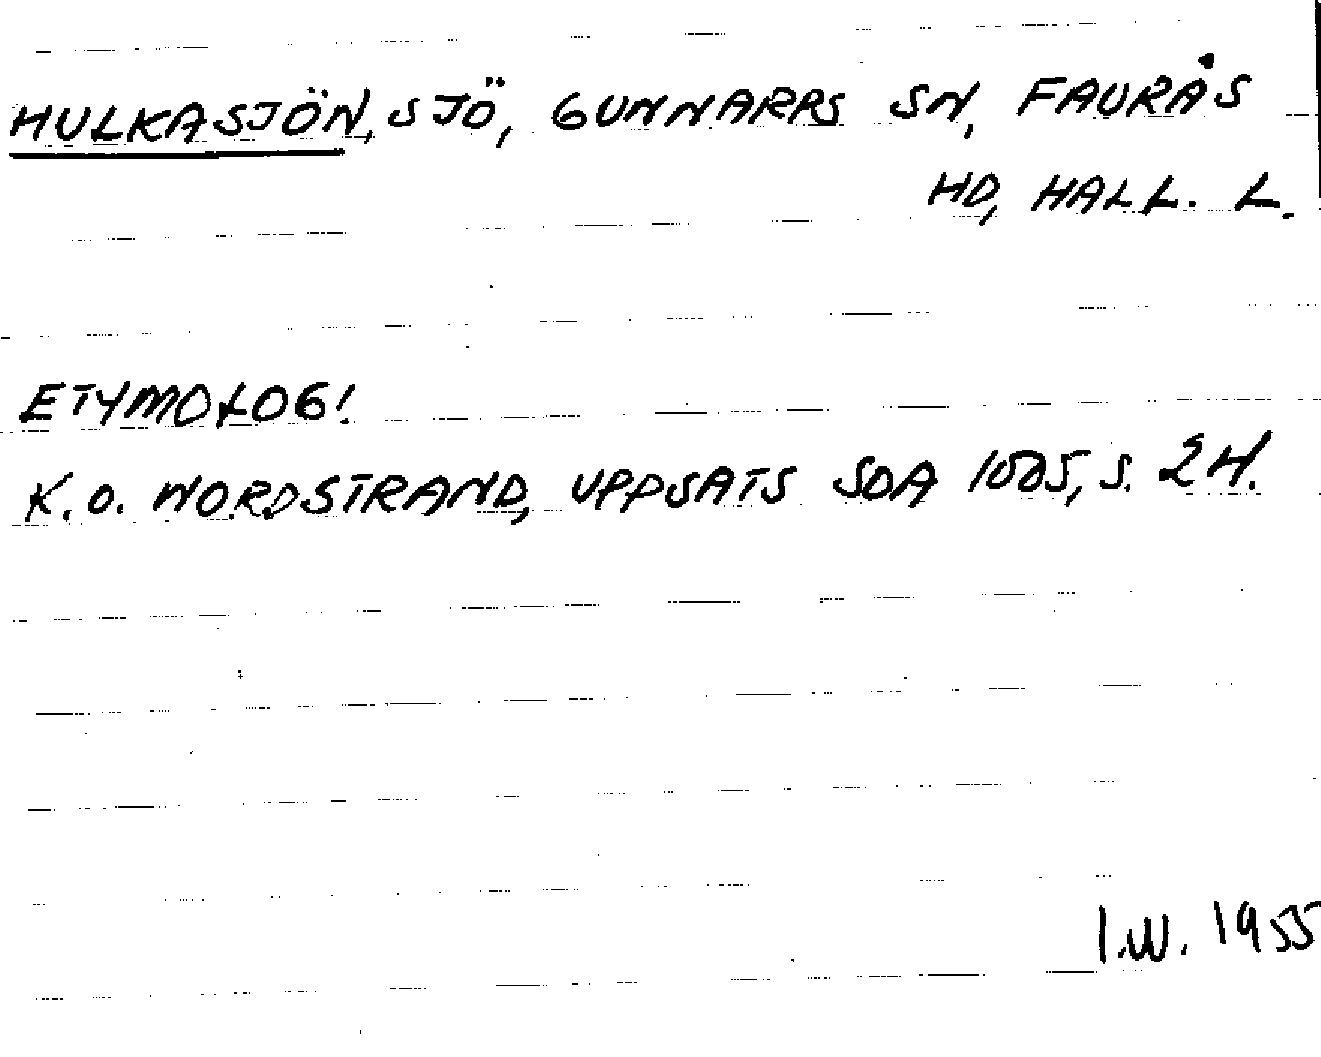 HULKASJÖN, SJÖ, GUNNARPS SN, FAURÅS
HD, HALL. L.
ETYMOLOGI
K.O. NORDSTRAND, UPPSATS SOA S. 24.
I.W. 1955